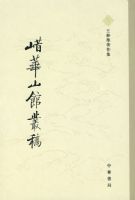 王仲犖著作集
㟙華山館叢稿
中華書局